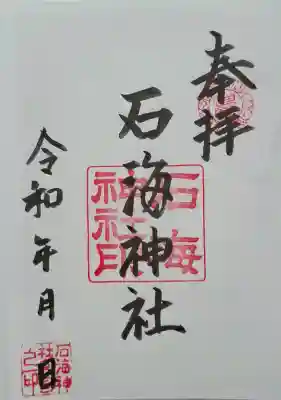 奉拝
石海神社
石海
神社印
令和 年 月 日
石海神
社
之印